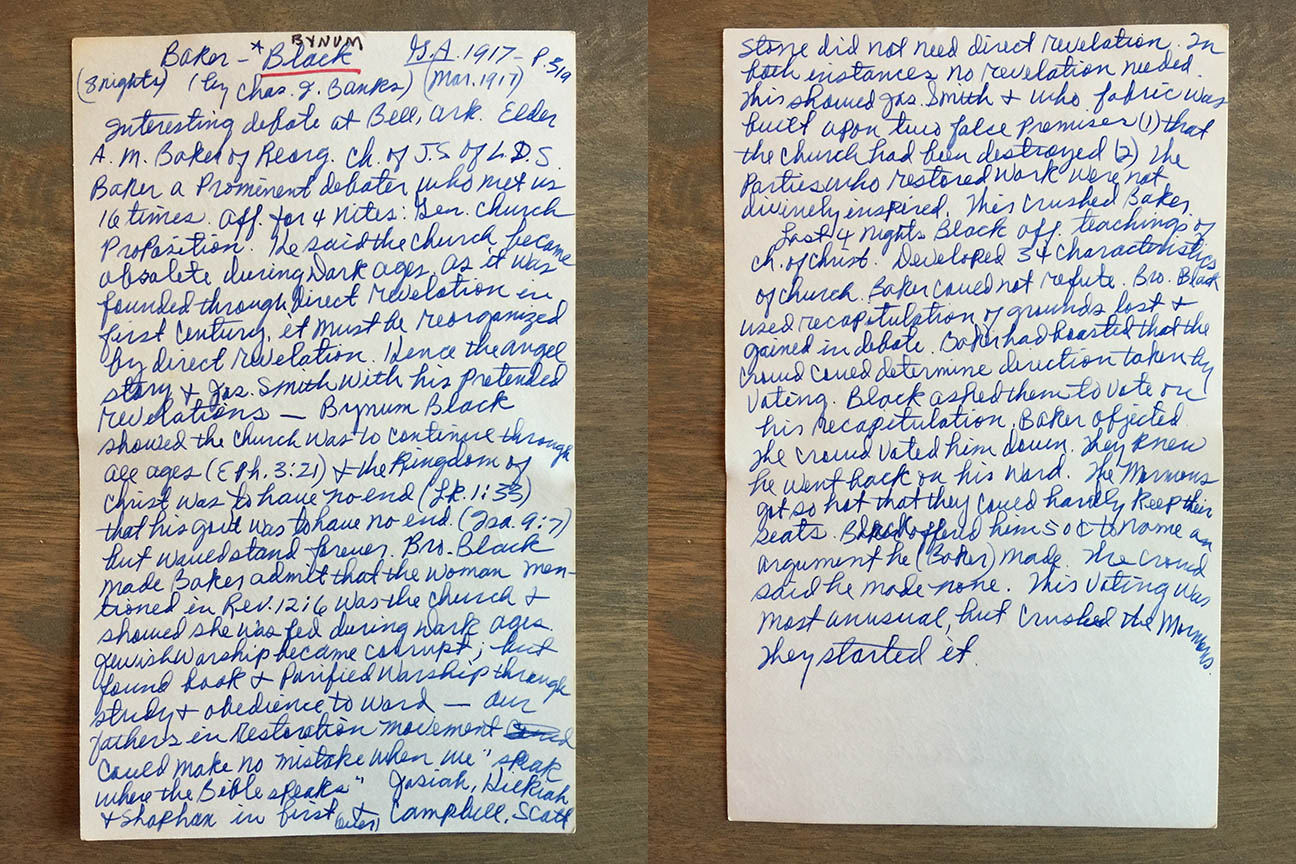 BYNUM
Baker - *Black G.A. 1917 - P 319
(8 nights) (by Chas. J. Banks) (Mar. 1917)
Interesting debate at Bell, Ark. Elder
A. M. Baker of Reorg. Ch. of J.S of L.D.S.
Baker a Prominent debater who met us
16 times. Aff. for 4 nites: Gen. Church
Proposition. He said the church became
obsolete during Dark ages, as it was
founded through Direct revelation in
first century, it must be reorganized
by direct revelation. Hence the angel
story & Jos. Smith with his pretended
revelations — Bynum Black
showed the church was to continue through
all ages (Eph. 3:21) & the Kingdom of
Christ was to have no end (Lk. 1:33)
that his govt was to have no end. (Isa. 9:7)
but would stand forever. Bro. Black
made Baker admit that the woman men-
tioned in Rev. 12:6 was the church &
showed she was fed during dark ages.
Jewish Worship became corrupt; but
found book & Purified Worship through
study & obedience to word — our
fathers in restoration movement
could make no mistake when we "speak
where the Bible speaks" Josiah, Hilkiah
& Shaphan in first & Campbell, Scott
Stone did not need direct revelation. In
both instances no revelation needed.
This showed Jos. Smith & who. fabric was
built upon two false premises (1) that
the church had been destroyed (2) The
Parties who restored work were not
divinely inspired. This crushed Baker.
Last 4 Nights Black aff. teachings of
ch. of Christ. Developed 34 characteristics
of church. Baker could not refute. Bro. Black
used recapitulation of grounds lost &
gained in debate. Baker had boasted that the
crowd could determine direction taken by
voting. Black asked them to vote on
his recapitulation. Baker objected.
The crowd voted him down. They knew
he went back on his word. The Mormons
got so hot that they could hardly keep their
seats. Black offered him 50¢ to name an
argument he (Baker) made. The crowd
said he made none. This voting was
most unusual, but crushed the Mormons.
They started it.